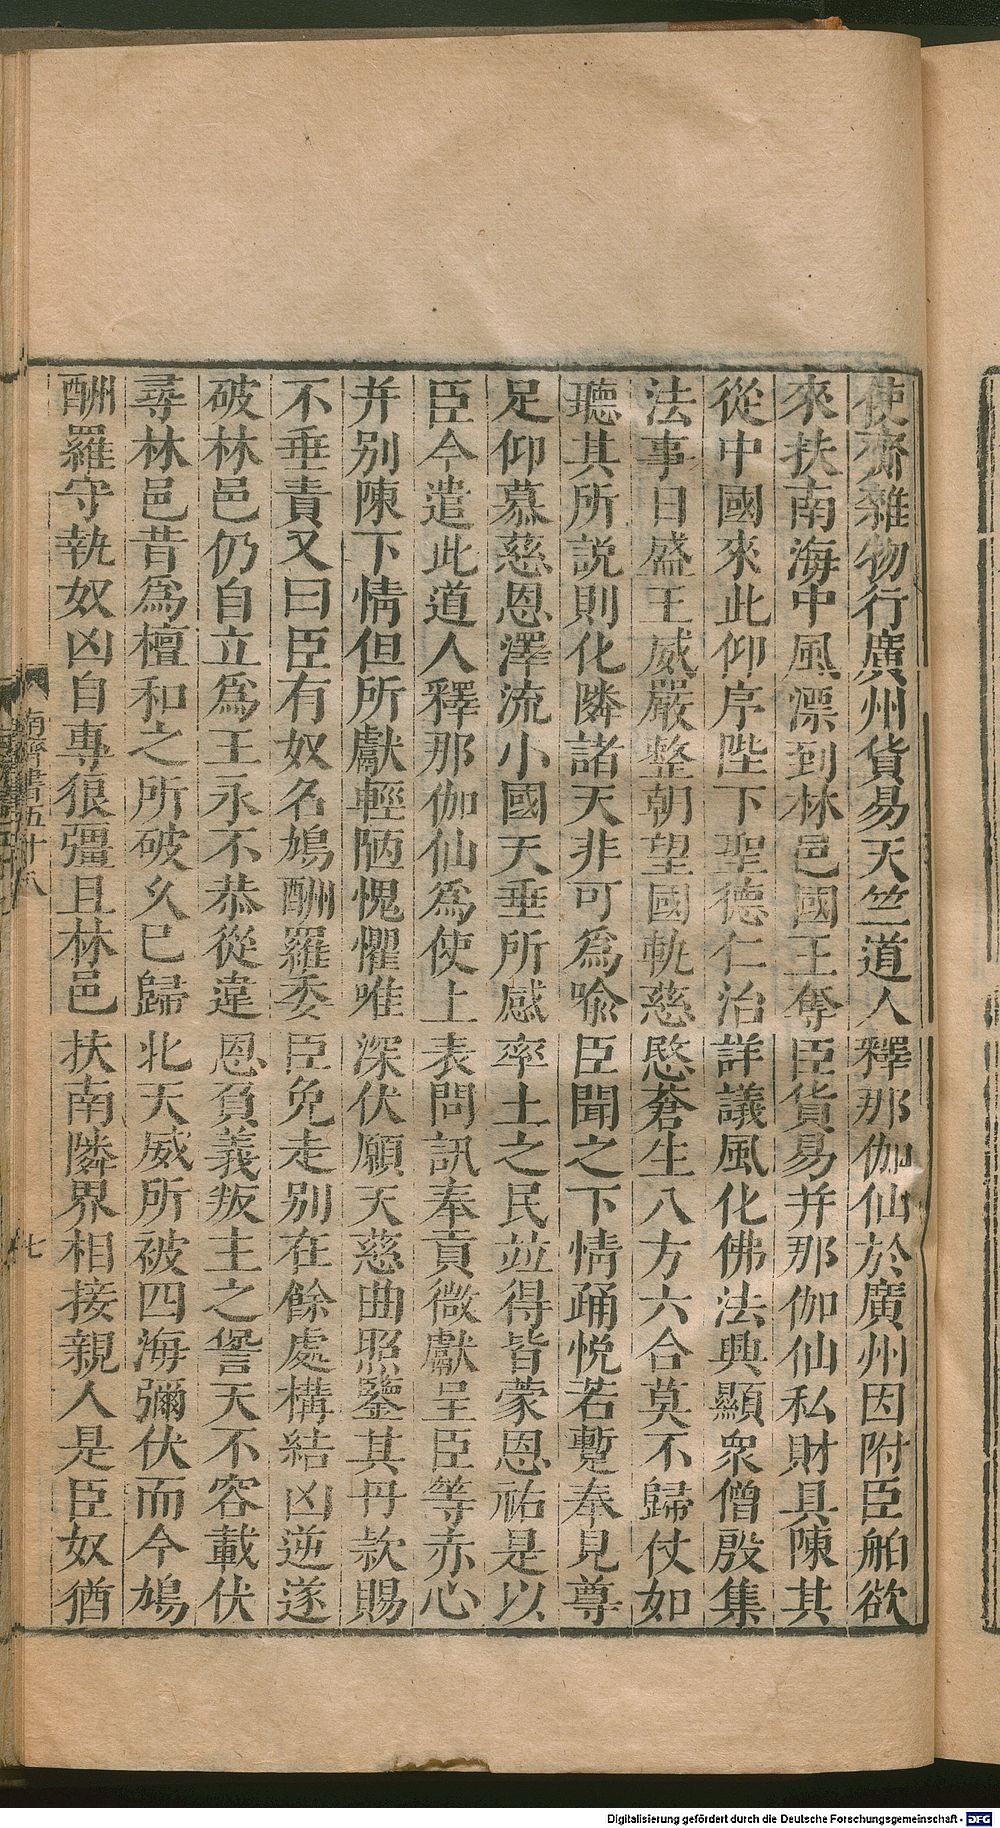 使齎雜物行廣州貨易天竺道人釋那伽仙於廣州因附臣舶欲
來扶南海中風漂到林邑國王奪臣貨易并那伽仙私財具陳其
從中國來此仰序陛下聖德仁治詳議風化佛法興顯衆僧殷集
法事日盛王威嚴整朝望國軌慈愍蒼生八方六合莫不歸仗如
聽其所說則化隣諸天非可爲喻臣聞之下情踊悅若蹔奉見尊
足仰慕慈恩澤流小國天垂所感率土之民竝得皆蒙恩祐是以
臣今遣此道人釋那伽仙爲使上表問訊奉貢微獻呈臣等赤心
并别陳下情但所獻輕陋愧懼唯深伏願天慈曲照鑒其丹款賜
不垂責又曰臣有奴名鳩酬羅委臣免走别在餘處構結凶逆遂
破林邑仍自立爲王永不恭從違恩負義叛主之諐天不容載伏
尋林邑昔爲檀和之所破久已歸北天威所被四海彌伏而今鳩
酬羅守執奴凶自專狼彊且林邑扶南隣界相接親人是臣奴猶
南齊書五十八
七
Digitalisierung gefördert durch die Deutsche Forschungsgemeinschaft - DFG